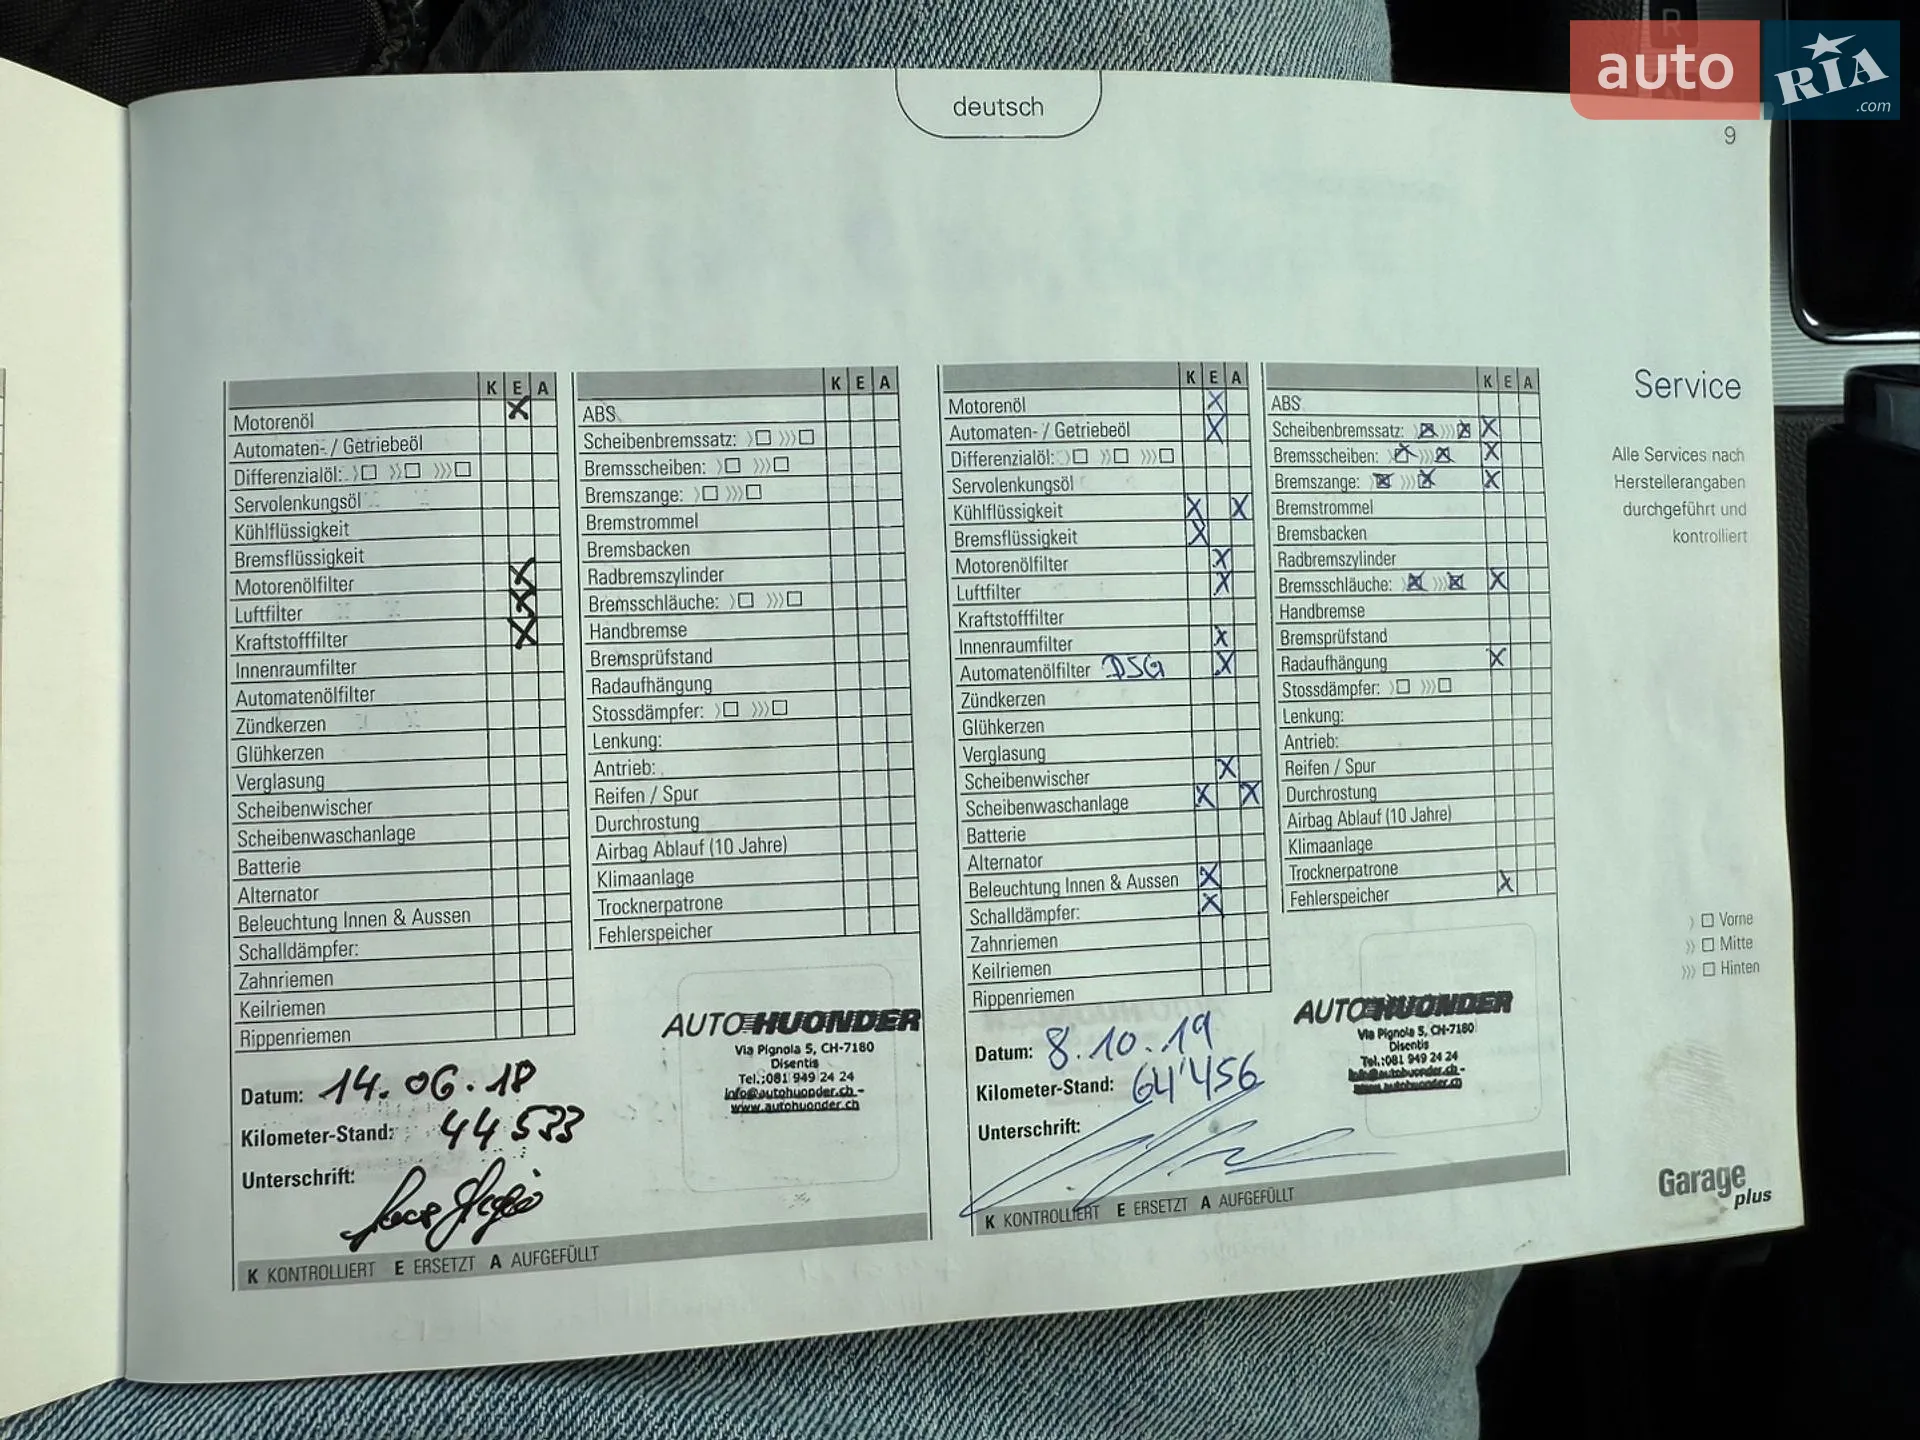 auto RIA .com
deutsch
9
K E A
Motorenöl X
Automaten- / Getriebeöl
Differenzialöl: 〉☐ 〉〉☐ 〉〉〉☐
Servolenkungsöl
Kühlflüssigkeit
Bremsflüssigkeit
Motorenölfilter X
Luftfilter X
Kraftstofffilter X
Innenraumfilter
Automatenölfilter
Zündkerzen
Glühkerzen
Verglasung
Scheibenwischer
Scheibenwaschanlage
Batterie
Alternator
Beleuchtung Innen & Aussen
Schalldämpfer:
Zahnriemen
Keilriemen
Rippenriemen
Datum: 14.06.18
Kilometer-Stand: 44533
Unterschrift:
K E A
ABS
Scheibenbremssatz: 〉☐ 〉〉〉☐
Bremsscheiben: 〉☐ 〉〉〉☐
Bremszange: 〉☐ 〉〉〉☐
Bremstrommel
Bremsbacken
Radbremszylinder
Bremsschläuche: 〉☐ 〉〉〉☐
Handbremse
Bremsprüfstand
Radaufhängung
Stossdämpfer: 〉☐ 〉〉〉☐
Lenkung:
Antrieb:
Reifen / Spur
Durchrostung
Airbag Ablauf (10 Jahre)
Klimaanlage
Trocknerpatrone
Fehlerspeicher
AUTO HUONDER
Via Pignola 5, CH-7180
Disentis
Tel.:081 949 24 24
info@autohuonder.ch -
www.autohuonder.ch
K KONTROLLIERT E ERSETZT A AUFGEFÜLLT
K E A
Motorenöl X
Automaten- / Getriebeöl X
Differenzialöl: 〉☐ 〉〉☐ 〉〉〉☐
Servolenkungsöl
Kühlflüssigkeit X X
Bremsflüssigkeit X
Motorenölfilter X
Luftfilter X
Kraftstofffilter
Innenraumfilter X
Automatenölfilter DSG X
Zündkerzen
Glühkerzen
Verglasung
Scheibenwischer X
Scheibenwaschanlage X X
Batterie
Alternator
Beleuchtung Innen & Aussen X
Schalldämpfer: X
Zahnriemen
Keilriemen
Rippenriemen
Datum: 8.10.19
Kilometer-Stand: 64'456
Unterschrift:
K E A
ABS
Scheibenbremssatz: 〉☒ 〉〉〉☒ X
Bremsscheiben: 〉☒ 〉〉〉☒ X
Bremszange: 〉☒ 〉〉〉☒ X
Bremstrommel
Bremsbacken
Radbremszylinder
Bremsschläuche: 〉☒ 〉〉〉☒ X
Handbremse
Bremsprüfstand
Radaufhängung X
Stossdämpfer: 〉☐ 〉〉〉☐
Lenkung:
Antrieb:
Reifen / Spur
Durchrostung
Airbag Ablauf (10 Jahre)
Klimaanlage
Trocknerpatrone
Fehlerspeicher X
AUTO HUONDER
Via Pignola 5, CH-7180
Disentis
Tel.:081 949 24 24
info@autohuonder.ch -
www.autohuonder.ch
K KONTROLLIERT E ERSETZT A AUFGEFÜLLT
Service
Alle Services nach
Herstellerangaben
durchgeführt und
kontrolliert
〉☐ Vorne
〉〉☐ Mitte
〉〉〉☐ Hinten
Garage
plus